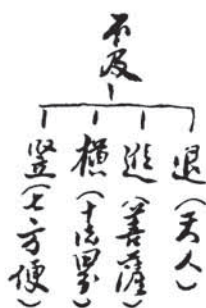 不及
退(天人)
進(菩薩)
横(十法界)
竪(七方便)